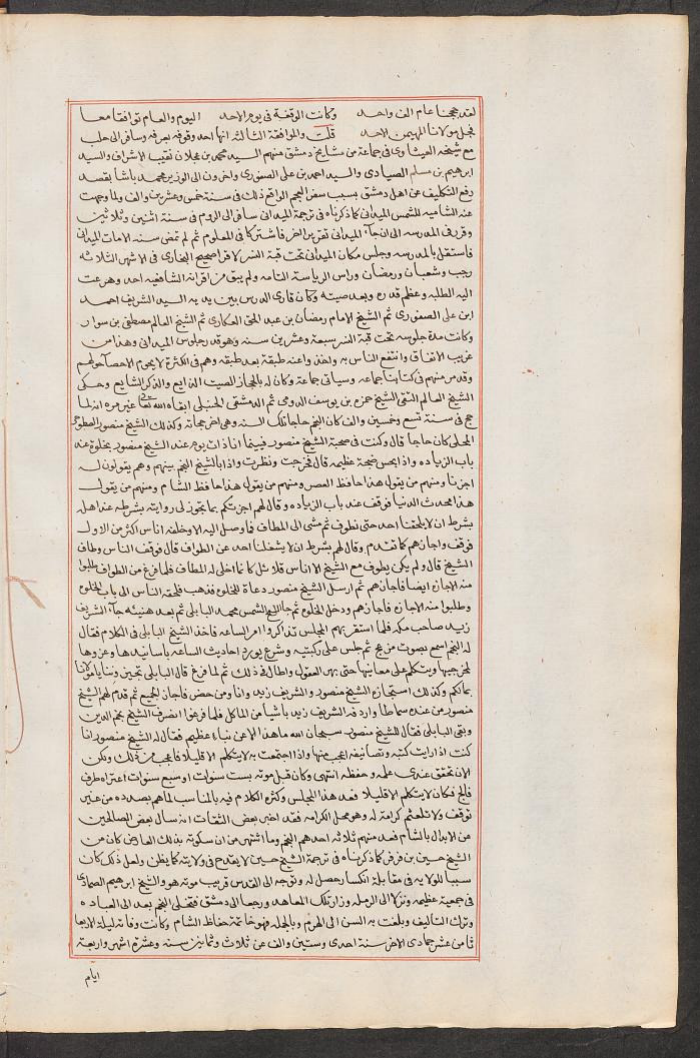 لقد حججنا عام الف واحد وكانت الوقفة فى يوم الاحد اليوم والعام توافقا معا
فجل مولانا المهيمن الاحد قلت والموافقة الثالثة انها احد وقوفه بعرفه وسافر الى حلب
مع شيخه العيثاوى فى جماعة من مشايخ دمشق منهم السيد محمد بن عجلان نقيب الاشراف والسيد
ابرهيم بن مسلم الصيادى والسيد احمد بن على الصفورى واخرون الى الوزير محمد باشا بقصد
رفع التكليف عن اهل دمشق بسبب سفر العجم الواقع ذلك فى سنة خمس وعشرين والف ولما وجهت
عنه الشاميه للشمس الميدانى كما ذكرناه فى ترجمة الميدانى سافر الى الروم فى سنة اثنين وثلاثين
وقرر فى المدرسه الى ان جآء الميدانى تقرير اخر فاشتركا فى المعلوم ثم لم تمض سنه الا مات الميدانى
فاستقل بالمدرسه وجلس مكان الميدانى تحت قبة النسر لاقرا صحيح البخارى فى الاشهر الثلاثه
رجب وشعبان ورمضان وراس الرياسة التامه ولم يبق من اقرانه الشافعيه احد وهرعت
اليه الطلبه وعظم قدره وبعد صيته وكان قارى الدرس بين يديه السيد الشريف احمد
ابن على الصفورى ثم الشيخ الامام رمضان بن عبد الحق العكارى ثم الشيخ العالم مصطفى بن سوار
وكانت مدة جلوسه تحت قبة النسر سبعة وعشرين سنه وهو قدر جلوس الميدانى وهذا من
غريب الاتفاق وانتفع الناس به واخذ واعنه طبقة بعد طبقه وهم فى الكثرة لا يحوم الاحصآ حولهم
وقد مر منهم فى كتابنا جماعه وسياتى جماعة وكان له بالحجاز الصيت الذايع والذكر الشايع وحكى
الشيخ العالم التقى الشيخ حمزه بن يوسف الدومى ثم الدمشقى الحنبلى ابقاه الله تعالى غير مره انه لما
حج فى سنة تسع وخمسين والف كان النجم حاجا تلك السنه وهى اخر حجاته وكذلك الشيخ منصور السطوحى
المحلى كان حاجا قال وكنت فى صحبة الشيخ منصور فبينما انا ذات يوم عند الشيخ منصور بخلوة عند
باب الزياده واذا بحس ضجة عظيمه قال فخرجت ونظرت واذا بالشيخ النجم بينهم وهم يقولون له
اجزنا ومنهم من يقول هذا حافظ العصر ومنهم من يقول هذا حافظ الشام ومنهم من يقول
هذا محدث الدنيا فوقف عند باب الزياده وقال لهم اجزتكم بما يجوز لى روايته بشرطه عند اهله
بشرط ان لا يلحقنا احد حتى نطوف ثم مشى الى المطاف فما وصل اليه الا وخلفه اناس اكثر من الاول
فوقف واجازهم كما تقدم وقال لهم بشرط ان لا يشغلنا احد عن الطواف قال فوقف الناس وطاف
الشيخ قال ولم يكن يطوف مع الشيخ الا اناس قلائل كانما اخلى له المطاف فلما فرغ من الطواف طلبوا
منه الاجازه ايضا فاجازهم ثم ارسل الشيخ منصور دعاه للخلوه فذهب فلحقه الناس الى باب الخلوه
وطلبوا منه الاجازه فاجازهم ودخل الخلوه ثم جا الشيخ الشمس محمد البابلى ثم بعد هنيئه جآء الشريف
زيد صاحب مكه فلما استقر بهم المجلس تذاكروا امر الساعه فاخذ الشيخ البابلى فى الكلام فقال
له النجم اسمع بصوت مزعج ثم جلس على ركبتيه وشرع يورد احاديث الساعه باسانيدها وعزوها
لمخرجيها ويتكلم على معانيها حتى بهر العقول واطال فى ذلك ثم لما فرغ قال البابلى تجيزوننا يا مولانا
بمالكم وكذلك استجازه الشيخ منصور والشريف زيد وانا ومن حضر فاجاز الجميع ثم قدم لهم الشيخ
منصور من عنده سماطا واردفه الشريف زيد باشيا من الماكل فلما فرغوا انصرف الشيخ نجم الدين
وبقى البابلى فقال للشيخ منصور سبحان الله ما هذا الا عن نباء عظيم فقال له الشيخ منصور انا
كنت اذا رايت كتبه وتصانيفه اعجب منها واذا اجتمعت به لا يتكلم الا قليلا فاعجب من ذلك ولكن
الان تحقق عندى علمه وحفظه انتهى وكان قبل موته بست سنوات او سبع سنوات اعتراه طرف
فالج فكان لا يتكلم الا قليلا فعد هذا المجلس وكثرة الكلام فيه بالمناسب لما هم بصدده من غير
توقف ولا تلعثم كرامة له وهو محل الكرامه فقد اخبر بعض الثقات انه سال بعض الصالحين
عن الابدال بالشام فعد منهم ثلاثه احدهم النجم وما اشتهر من ان سكوته بذلك العارض كان من
الشيخ حسين بن فرفره كما ذكرناه فى ترجمة الشيخ حسين لا يقدح فى ولايته كما يظن ولعل ذلك كان
سببا للولايه فى مقابلة انكسار حصل له وتوجه الى القدس قريب موته هو والشيخ ابرهيم الصمادى
فى جمعية عظيمه ونزلا الى الرمله وزارا تلك المعاهد ورجعا الى دمشق فتخلى النجم بعد الى العباده
وترك التاليف وبلغت به السن الى الهرم وبالجمله فهو خاتمة حفاظ الشام وكانت وفاته ليلة الاربعا
ثامن عشر جمادى الاخر سنة احدى وستين والف عن ثلاث وثمانين سنه وعشرة اشهر واربعة
ايام